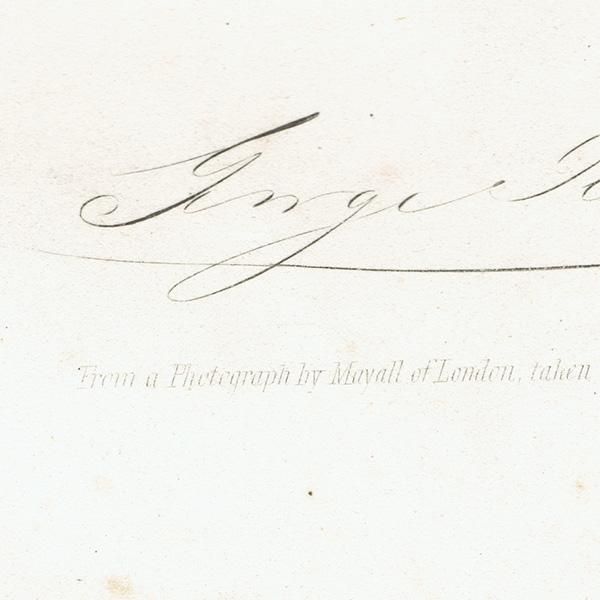 George
From a Photograph by Mayall of London, taken